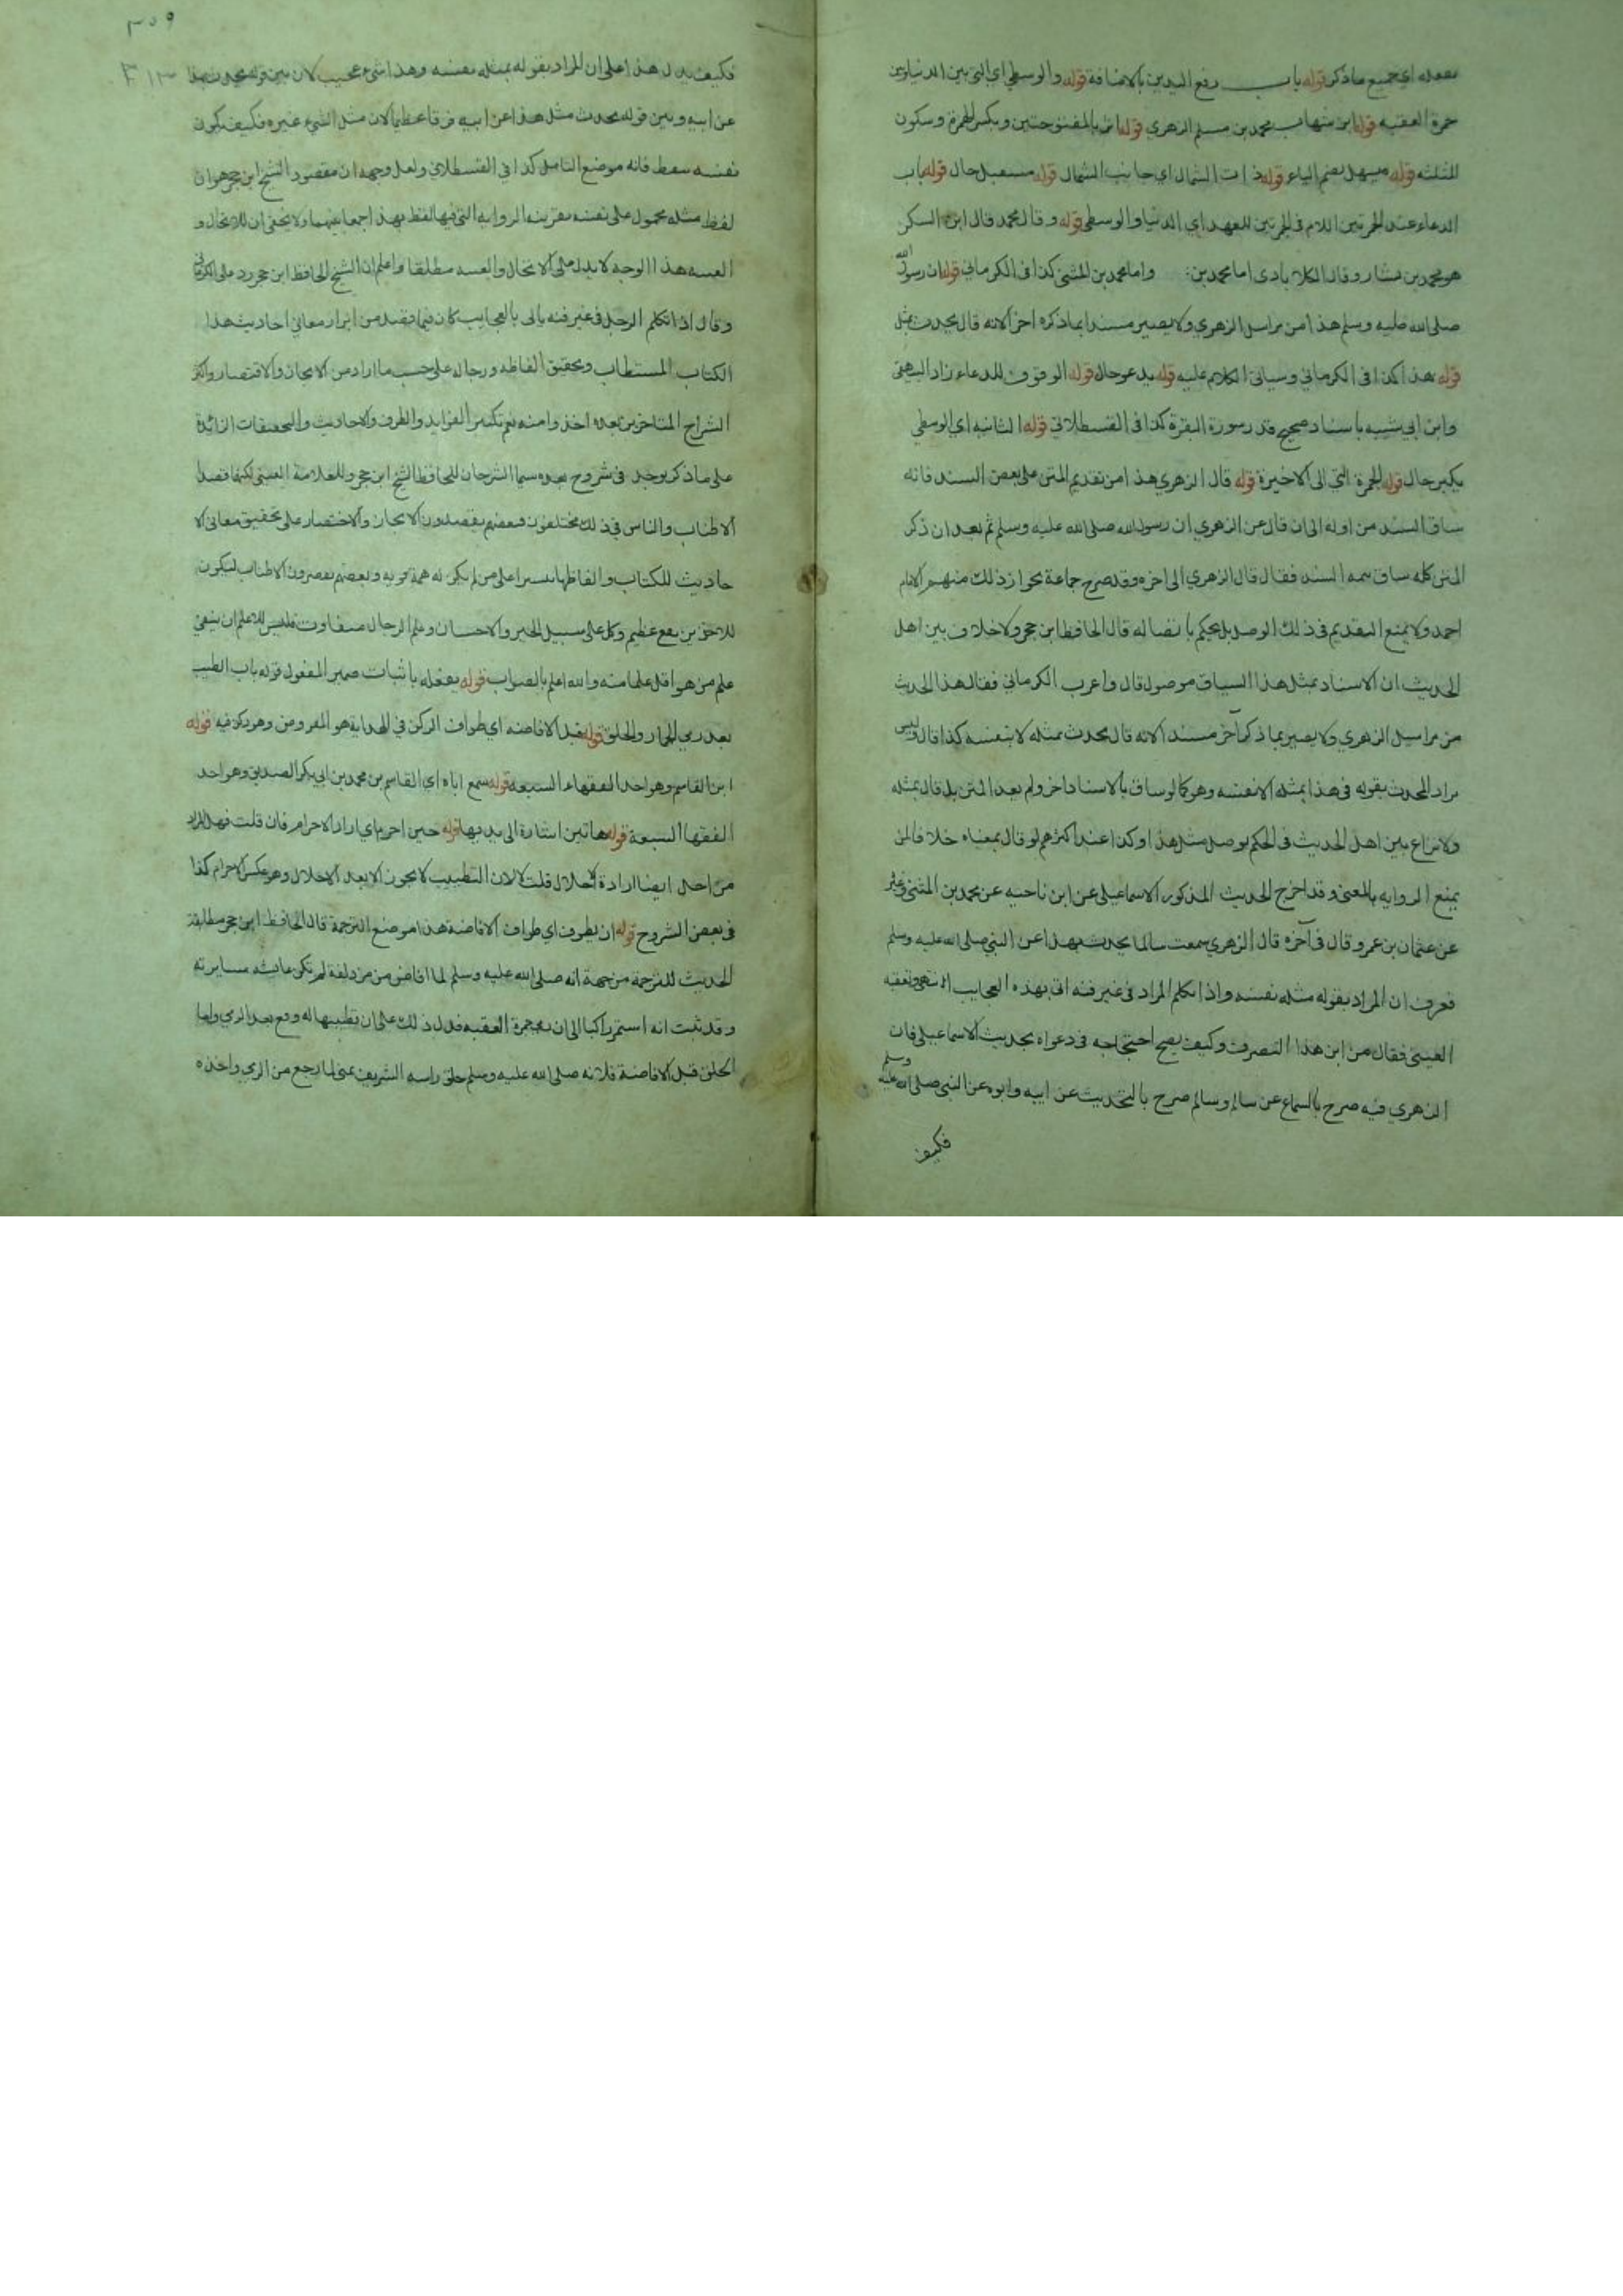 يفعله اي جميع ما ذكر قوله باب رفع اليدين بالاضافة قوله والوسطي اي التي بين الدنيا وبين
جمرة العقبه قوله ابن شهاب محمد بن مسلم الزهري قوله اثر بالمفتوحتين وبكسر الهمزة وسكون
المثلثه قوله فيسهل بضم الياء قوله ذات الشمال اي جانب الشمال قوله مستقبل حال قوله باب
الدعاء عند الجمرتين اللام في الجمرتين للعهد اي الدنيا والوسطي قوله وقال محمد قال ابن السكن
هو محمد بن بشار وقال الكلابادي اما محمد بن واما محمد بن المثني كذا في الكرماني قوله ان رسول الله
صلي الله عليه وسلم هذا من مراسل الزهري ولا يصير مسندا بما ذكره اخر الانه قال يحدث بمثل
قوله هذا كذا في الكرماني وسياتي الكلام عليه قوله يدعو حال قوله الوقوف للدعاء زاد البيهقي
وابن ابي شيبه باسناد صحيح قدر سورة البقرة كذا في القسطلاني قوله الثانيه اي الوسطي
يكبر حال قوله الجمرة التي الي الاخيرة قوله قال الزهري هذا من تقديم المتن علي بعض السند فانه
ساق السند من اوله الي ان قال عن الزهري ان رسول الله صلي الله عليه وسلم ثم بعد ان ذكر
المتن كله ساق تتمه السند فقال قال الزهري الي اخره وقد صرح جماعة بجواز ذلك منهم الامام
احمد ولا يمنع التقديم في ذلك الوصل بل يحكم باتصاله قال الحافظ ابن حجر ولا خلاف بين اهل
الحديث ان الاسناد بمثل هذا السياق موصول قال واغرب الكرماني فقال هذا الحديث
من مراسيل الزهري ولا يصير بما ذكر آخر مسندا لانه قال يحدث بمثله لا بنفسه كذا قال وليس
مراد المحدث بقوله في هذا بمثله الا نفسه وهو كما لو ساق بالاسناد اخر ولم يعد المتن بل قال بمثله
ولا نزاع بين اهل الحديث في الحكم بوصل مثل هذا وكذا عند اكثرهم لو قال بمعناه خلافا لمن
يمنع الروايه بالمعني وقد اخرج الحديث المذكور الاسماعيلي عن ابن ناجيه عن محمد بن المثني وغيره
عن عثمان بن عمرو قال في آخره قال الزهري سمعت سالما يحدث بهذا عن النبي صلي الله عليه وسلم
فعرف ان المراد بقوله مثله نفسه واذا تكلم المراد في غير فنه اتي بهذه العجايب انتهي وتعقبه
العيني فقال من اين هذا التصرف وكيف يصح احتجاجه في دعواه بحديث الاسماعيلي فان
الزهري فيه صرح بالسماع عن سالم وسالم صرح بالتحديث عن ابيه وابوه عن النبي صلي الله عليه وسلم
فكيف
٣٥٩
فكيف يدل هذا علي ان المراد بقوله بمثله نفسه وهذا شيء عجيب لان بين قوله يحدث بهذا
عن ابيه وبين قوله يحدث مثل هذا عن ابيه فرقا عظيما لان مثل الشيء غيره فكيف يكون
نفسه تيقظ فانه موضع التامل كذا في القسطلاني ولعل وجهه ان مقصود الشيخ ابن حجر هو ان
لفظ مثله محمول علي نفسه بقرينه الروايه التي فيها لفظ بهذا جمعا بينهما ولا يخفي ان
هذا الوجه لا يدل علي مطلقا واعلم ان الشيخ الحافظ ابن حجر رد علي الكرماني
وقال اذا تكلم الرجل في غير فنه ياتي بالعجايب كان فيما قصد من ابراز معاني احاديث هذا
الكتاب المستطاب وتحقيق الفاظه ورجاله علي حسب ما اراد من الايجاز والاقتصار واكثر
الشراح المتاخرين بعده اخذوا منه نعم تكثير الفوايد والطرف والاحاديث والتحقيقات الزائدة
علي ما ذكر يوجد في شروح بعده سيما الشرحان للحافظ الشيخ ابن حجر وللعلامة العيني لكنهما قصدا
الاطناب والناس في ذلك مختلفون فبعضهم يقصدون الايجاز والاختصار علي تحقيق معاني الا
حاديث للكتاب والفاظها تيسيرا علي من لم يكن له همة قويه وبعضهم يقصدون الاطناب ليكون
للاخرين نفع عظيم وكل علي سبيل الخير والاحسان وعلم الرجال متفاوت فليس للاعلم ان ينفي
علم من هو اقل علما منه والله اعلم بالصواب قوله يفعله باثبات ضمير المفعول قوله باب الطيب
بعد رمي الجمار والحلق قوله قبل الافاضه اي طواف الركن في الهداية هو المفروض وهو ركن فيه قوله
ابن القاسم وهو احد الفقهاء السبعه قوله سمع اباه اي القاسم بن محمد بن ابي بكر الصديق وهو احد
الفقها السبعة قوله هاتين اشارة الي يديها قوله حين احرم اي اراد الاحرام فان قلت فهل المراد
من احل ايضا ارادة الاحلال قلت لا لان التطييب لا يجوز الا بعد الاحلال وهو عكس الاحرام كذا
في بعض الشروح قوله ان يطوف اي طواف الافاضة هذا موضع الترجمة قال الحافظ ابن حجر مطابقة
الحديث للترجمة من جهة انه صلي الله عليه وسلم لما افاض من مزدلفة لم تكن عائشه مسايرته
وقد ثبت انه استمر راكبا الي ان رمي جمرة العقبه فدل ذلك علي ان تطييبها له وقع بعد الرمي واما
الحلق قبل الافاضة فلانه صلي الله عليه وسلم حلق راسه الشريف بمني لما رجع من الرمي واخذه